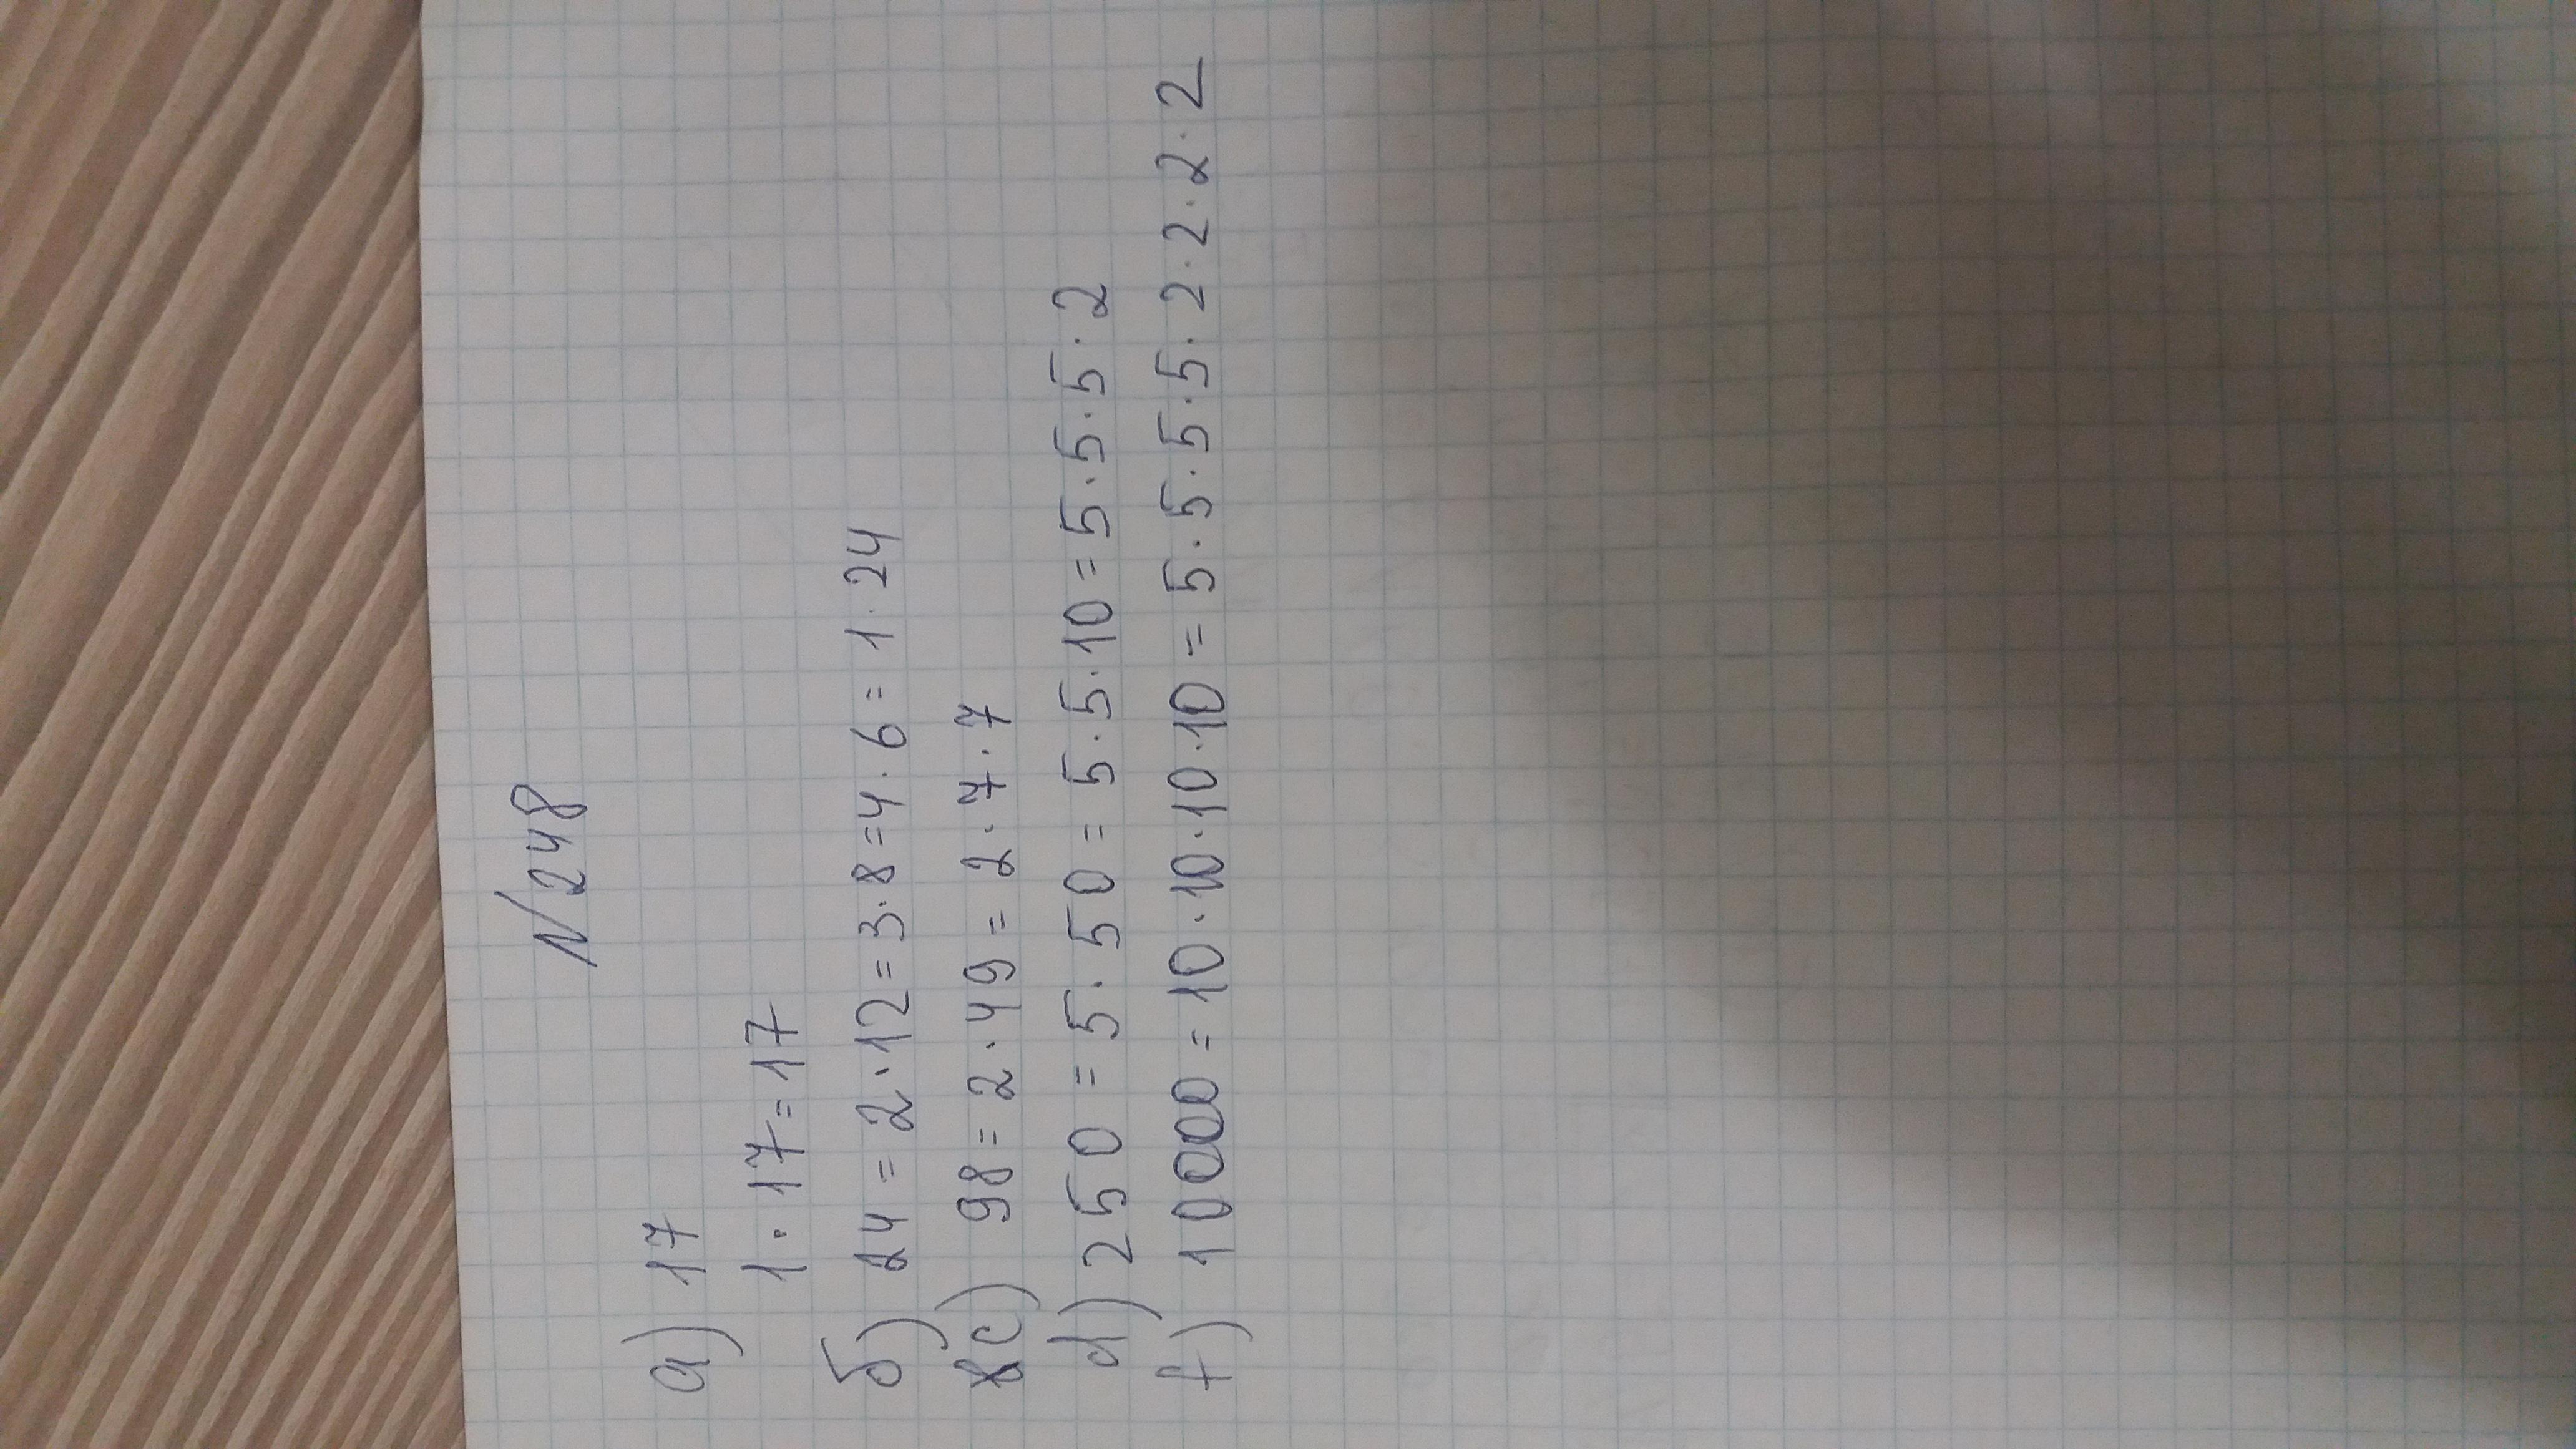 N248
a) 17
1·17=17
б) 24 = 2·12=3·8=4·6=1·24
c) 98=2·49=2·7·7
d) 250=5·50=5·5·10=5·5·5·2
f) 10000=10·10·10·10=5·5·5·5·2·2·2·2